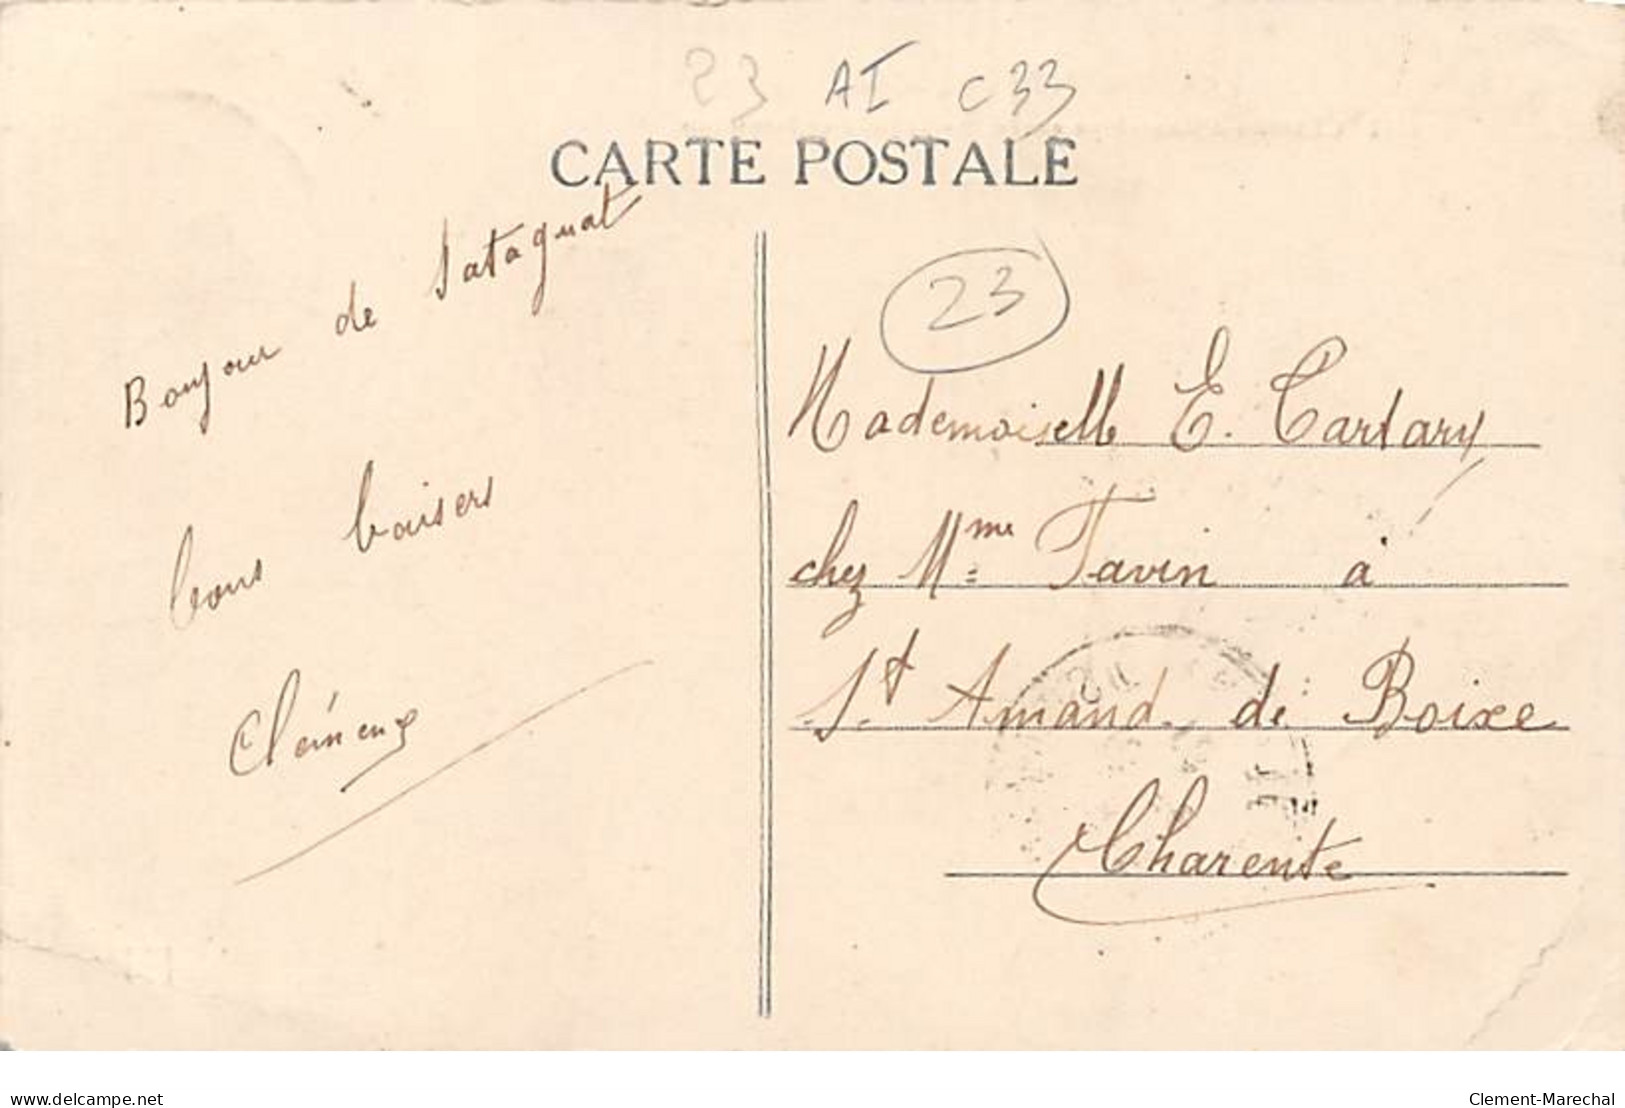 23 AI C33
CARTE POSTALE
Bonjour de Satagnat
bons baisers
23
Mademoiselle E. Tartary
chez Mme Tavin à
St Amand de Boixe
Charente
delcampe.net
Clement-Marechal